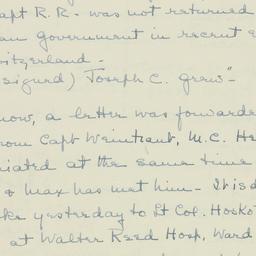 apt R. R. was not returned
an government in recent e
itzerland -
signed) Joseph C. Grew"-
now, a letter was forwarde
rom Capt Weintraut, M.C. He
iated at the same time
& Max has met him - It is d
ke yesterday to Lt Col. Hosko
at Walter Reed Hosp, Ward